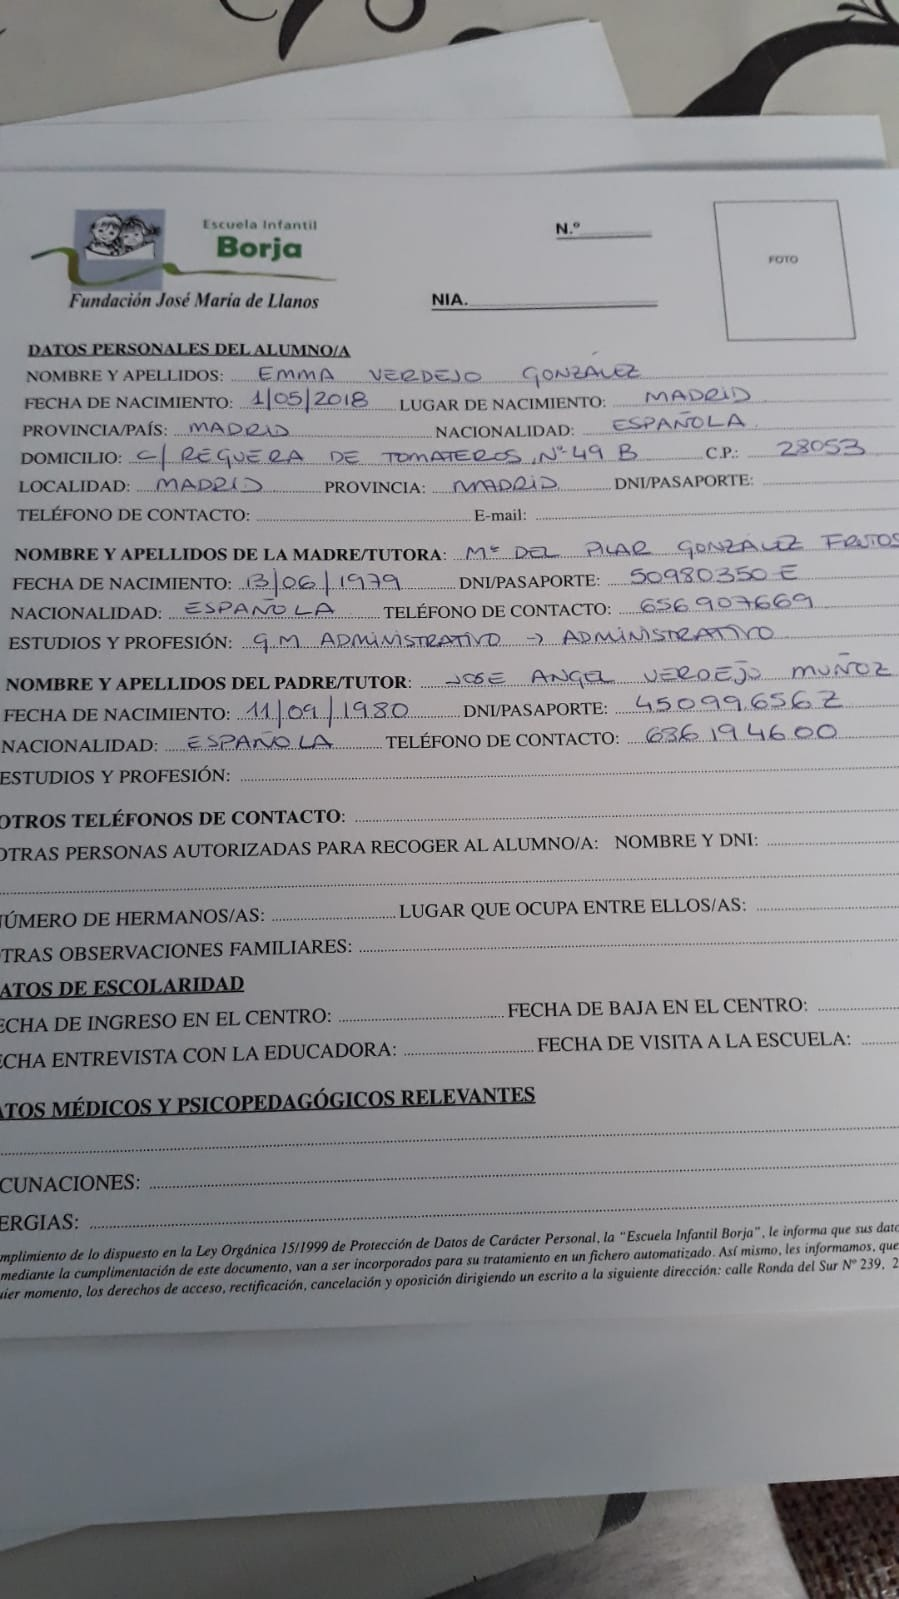 Escuela Infantil
Borja
Fundación José María de Llanos
N.º
NIA.
FOTO
DATOS PERSONALES DEL ALUMNO/A
NOMBRE Y APELLIDOS: EMMA VERDEJO GONZÁLEZ
FECHA DE NACIMIENTO: 1/05/2018 LUGAR DE NACIMIENTO: MADRID
PROVINCIA/PAÍS: MADRID NACIONALIDAD: ESPAÑOLA
DOMICILIO: C/ REGUERA DE TOMATEROS, Nº 49 B C.P.: 28053
LOCALIDAD: MADRID PROVINCIA: MADRID DNI/PASAPORTE:
TELÉFONO DE CONTACTO: E-mail:
NOMBRE Y APELLIDOS DE LA MADRE/TUTORA: Mª DEL PILAR GONZÁLEZ FRUTOS
FECHA DE NACIMIENTO: 13/06/1979 DNI/PASAPORTE: 50980350 E
NACIONALIDAD: ESPAÑOLA TELÉFONO DE CONTACTO: 656907669
ESTUDIOS Y PROFESIÓN: G.M ADMINISTRATIVO → ADMINISTRATIVO
NOMBRE Y APELLIDOS DEL PADRE/TUTOR: JOSE ANGEL VERDEJO MUÑOZ
FECHA DE NACIMIENTO: 11/09/1980 DNI/PASAPORTE: 45099656Z
NACIONALIDAD: ESPAÑOLA TELÉFONO DE CONTACTO: 636194600
ESTUDIOS Y PROFESIÓN:
OTROS TELÉFONOS DE CONTACTO:
OTRAS PERSONAS AUTORIZADAS PARA RECOGER AL ALUMNO/A: NOMBRE Y DNI:
NÚMERO DE HERMANOS/AS: LUGAR QUE OCUPA ENTRE ELLOS/AS:
TRAS OBSERVACIONES FAMILIARES:
ATOS DE ESCOLARIDAD
ECHA DE INGRESO EN EL CENTRO: FECHA DE BAJA EN EL CENTRO:
ECHA ENTREVISTA CON LA EDUCADORA: FECHA DE VISITA A LA ESCUELA:
ATOS MÉDICOS Y PSICOPEDAGÓGICOS RELEVANTES
CUNACIONES:
ERGIAS:
mplimiento de lo dispuesto en la Ley Orgánica 15/1999 de Protección de Datos de Carácter Personal, la “Escuela Infantil Borja”, le informa que sus dato
mediante la cumplimentación de este documento, van a ser incorporados para su tratamiento en un fichero automatizado. Así mismo, les informamos, que
uier momento, los derechos de acceso, rectificación, cancelación y oposición dirigiendo un escrito a la siguiente dirección: calle Ronda del Sur Nº 239, 2